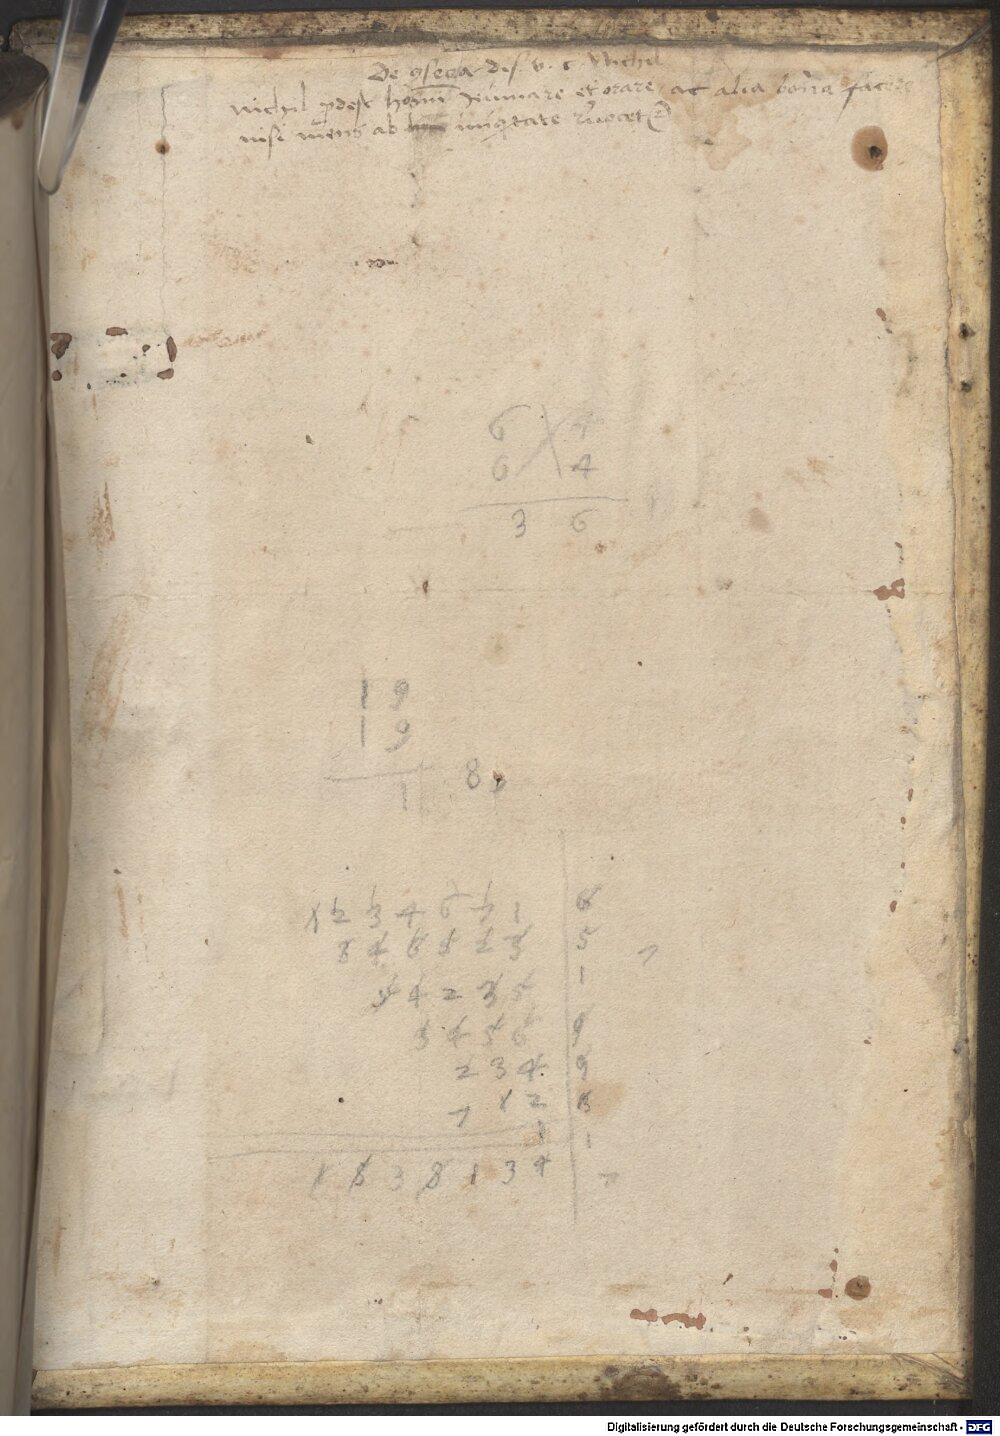 De ꝯsecra dis. v. c. Nichil
Nichil ꝓdest homĩ Jeiunare et orare, ac alia bona facere
nisi mens ab iniqͥtate reuocet᷑
6 4
6 4
3 6
1 9
1 9
1
8
1 2 3 4 6 7 1 6
8 4 6 5 2 3 5
7
5 4 2 3 5 1
3 4 5 6 9
2 3 4 9
1 2 8
7
1 1
1 8 3 8 1 3 4
7
Digitalisierung gefördert durch die Deutsche Forschungsgemeinschaft - DFG